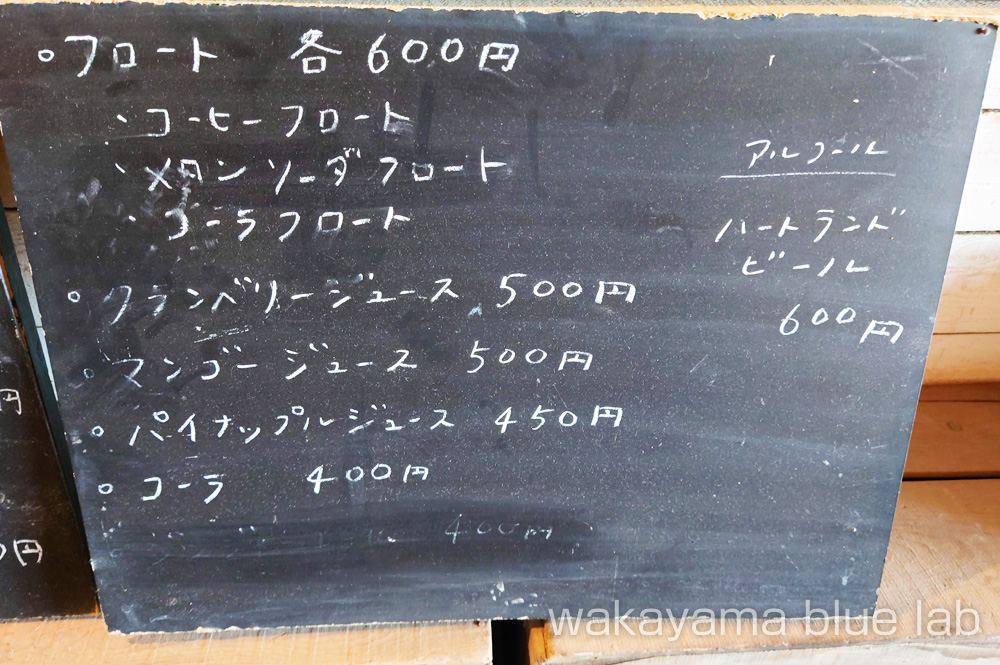 。フロート 各600円
・コーヒーフロート
・メロンソーダフロート
・コーラフロート
。クランベリージュース 500円
。マンゴージュース 500円
。パイナップルジュース 450円
。コーラ 400円
400円
アルコール
ハートランド
ビール
600円
円
0円
wakayama blue lab